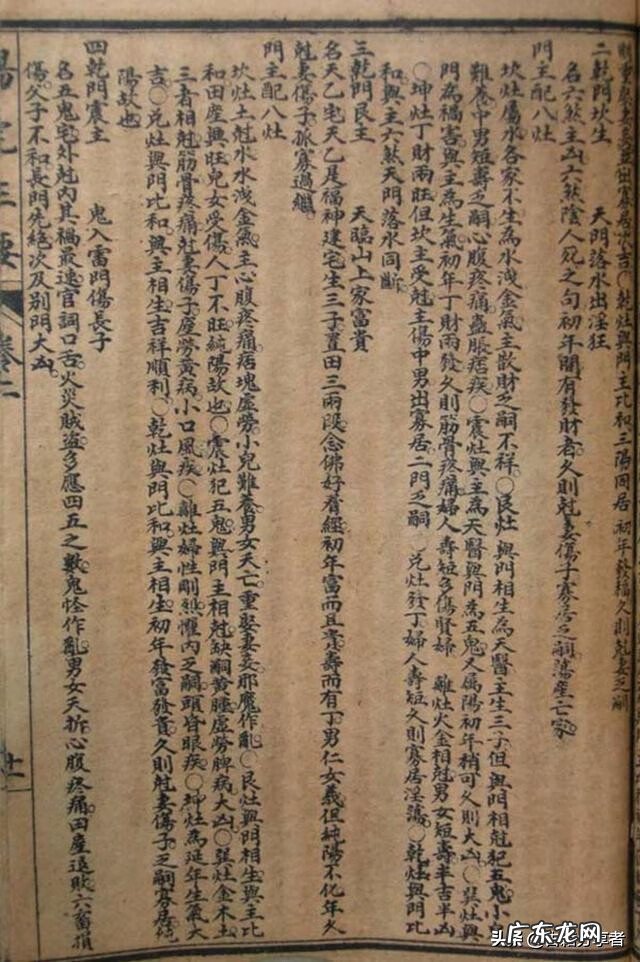 則重娶妻妾並出寡居次吉〇乾灶與門主比和三陽同居初年發福久則尅妻乏嗣
二乾門坎主　天門落水出淫狂
名六煞主凶六煞陰人死之句初年間有發財者久則尅妻傷子寡居乏嗣蕩產亡家
門主配八灶
坎灶屬水各家不生為水洩金氣主散財乏嗣不祥〇艮灶與門相生為天醫主生三子但與門相尅犯五鬼小口
難養中男短壽乏嗣心腹疼痛蠱脹痞疾〇震灶與主為天醫與門為五鬼又属陽初年稍可久則大凶〇巽灶與
門為禍害與主為生氣初年丁財兩發久則筋骨疼痛婦人壽短多傷賢婦　離灶火金相尅男女短壽半吉半凶
〇坤灶丁財兩旺但坎主受尅主傷中男出寡居二門乏嗣　兑灶發丁婦人壽短久則寡居淫蕩〇乾灶與門比
和與主六煞天門落水同斷
三乾門艮主　天臨山上家富貴
名天乙宅天乙是福神建宅生三子置田三兩段念佛好看經初年富而且貴壽而有丁男仁女義但純陽不化年久
尅妻傷子孤寡過繼
門主配八灶
坎灶土尅水水洩金氣主心腹疼痛痞塊虛勞小兒難養男女夭亡重娶妻妾邪魔作亂〇艮灶與門相生與主比
和田產興旺兒女受傷人丁不旺純陽故也〇震灶犯五鬼與門主相尅缺嗣黃腫虛勞脾病大凶〇巽灶金木土
三者相尅筋骨疼痛尅妻傷子產勞黃病小口風疾〇離灶婦性剛烈懼內乏嗣頭昏眼疾〇坤灶為延年生氣大
吉〇兑灶與門比和與主相生吉祥順利〇乾灶與門比和與主相生初年發富發貴久則尅妻傷子乏嗣寡居純
陽故也
四乾門震主　鬼入雷門傷長子
名五鬼宅外尅內其禍最速官詞口舌火災賊盜多應四五之數鬼怪作亂男女夭折心腹疼痛田產退敗六畜損
傷父子不和長門先絕次及別門大凶
陽宅三要 卷二 廿
头条 @
广东龙网